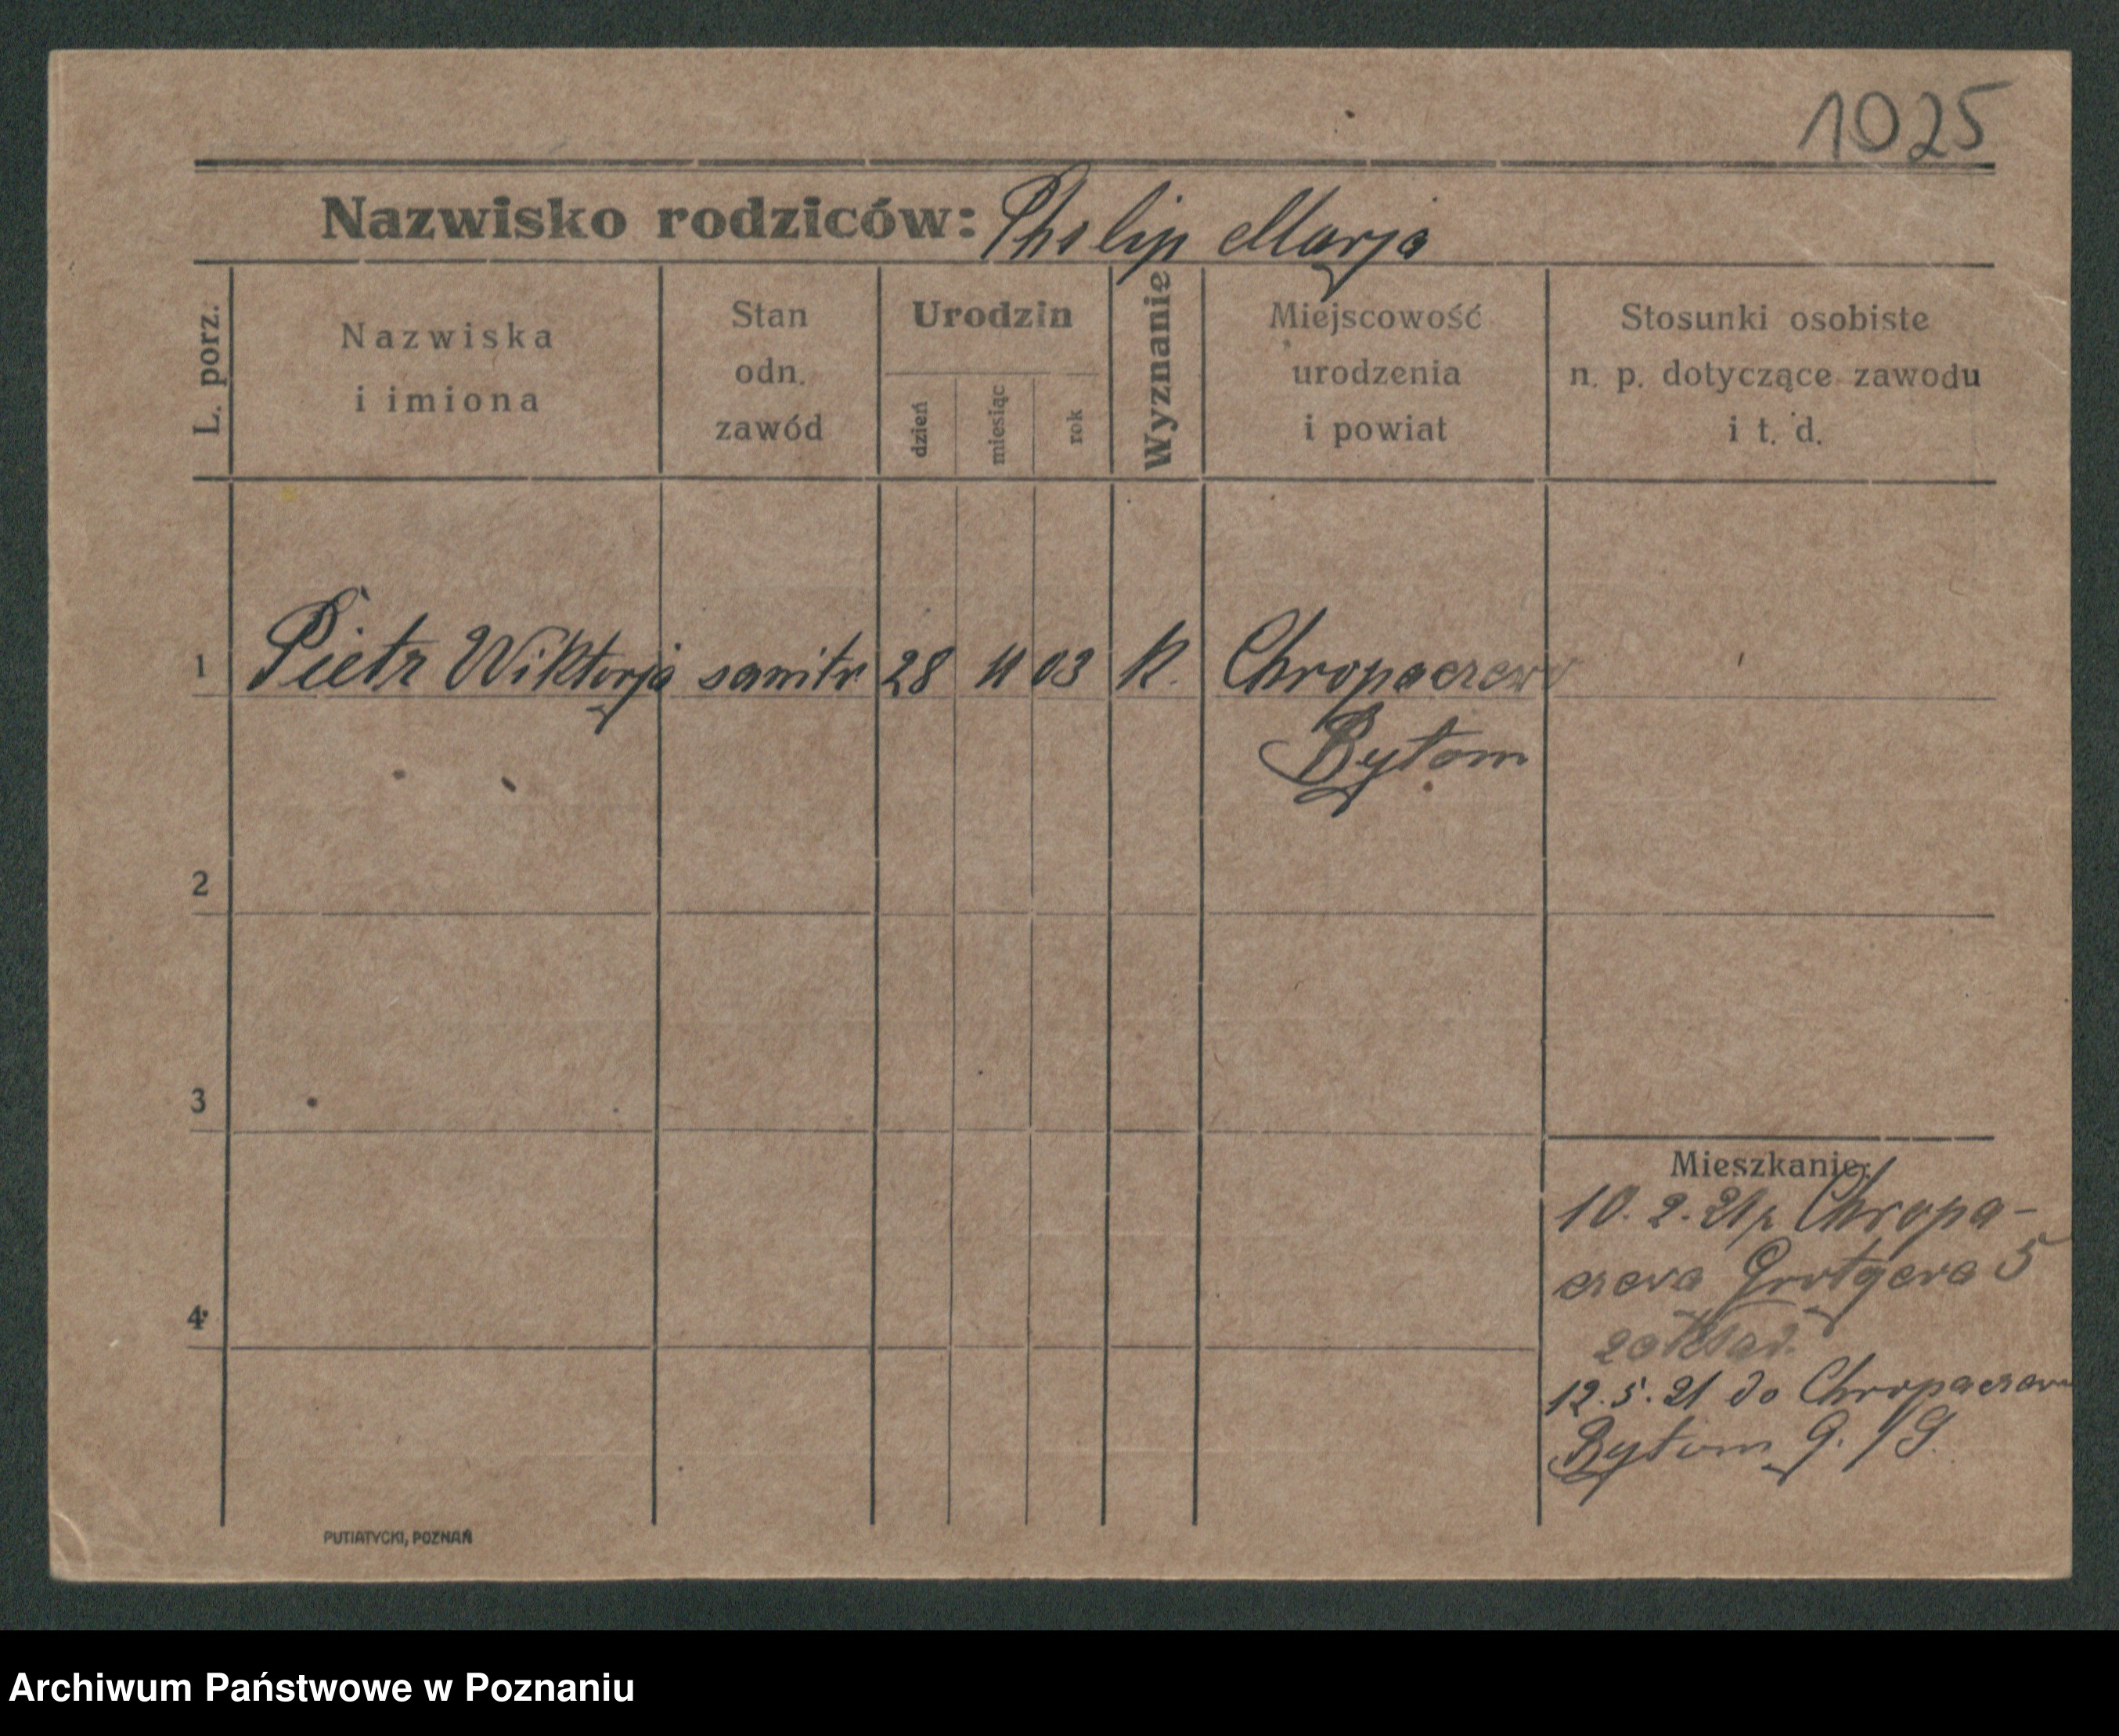 1025
Nazwisko rodziców: Philip Marja
L. porz.
Nazwiska
i imiona
Stan
odn.
zawód
Urodzin
dzień
miesiąc
rok
Wyznanie
Miejscowość
urodzenia
i powiat
Stosunki osobiste
n. p. dotyczące zawodu
i t. d.
1 Pietr Wiktorja sanitr. 28 11 03 K. Chropaczew
Bytom
2
3
4
Mieszkanie:
10. 2. 21 z Chropa-
czewa Grotgera 5
zakład.
12. 5. 21 do Chropaczewa
Bytom G./S.
PUTIATYCKI, POZNAŃ
Archiwum Państwowe w Poznaniu